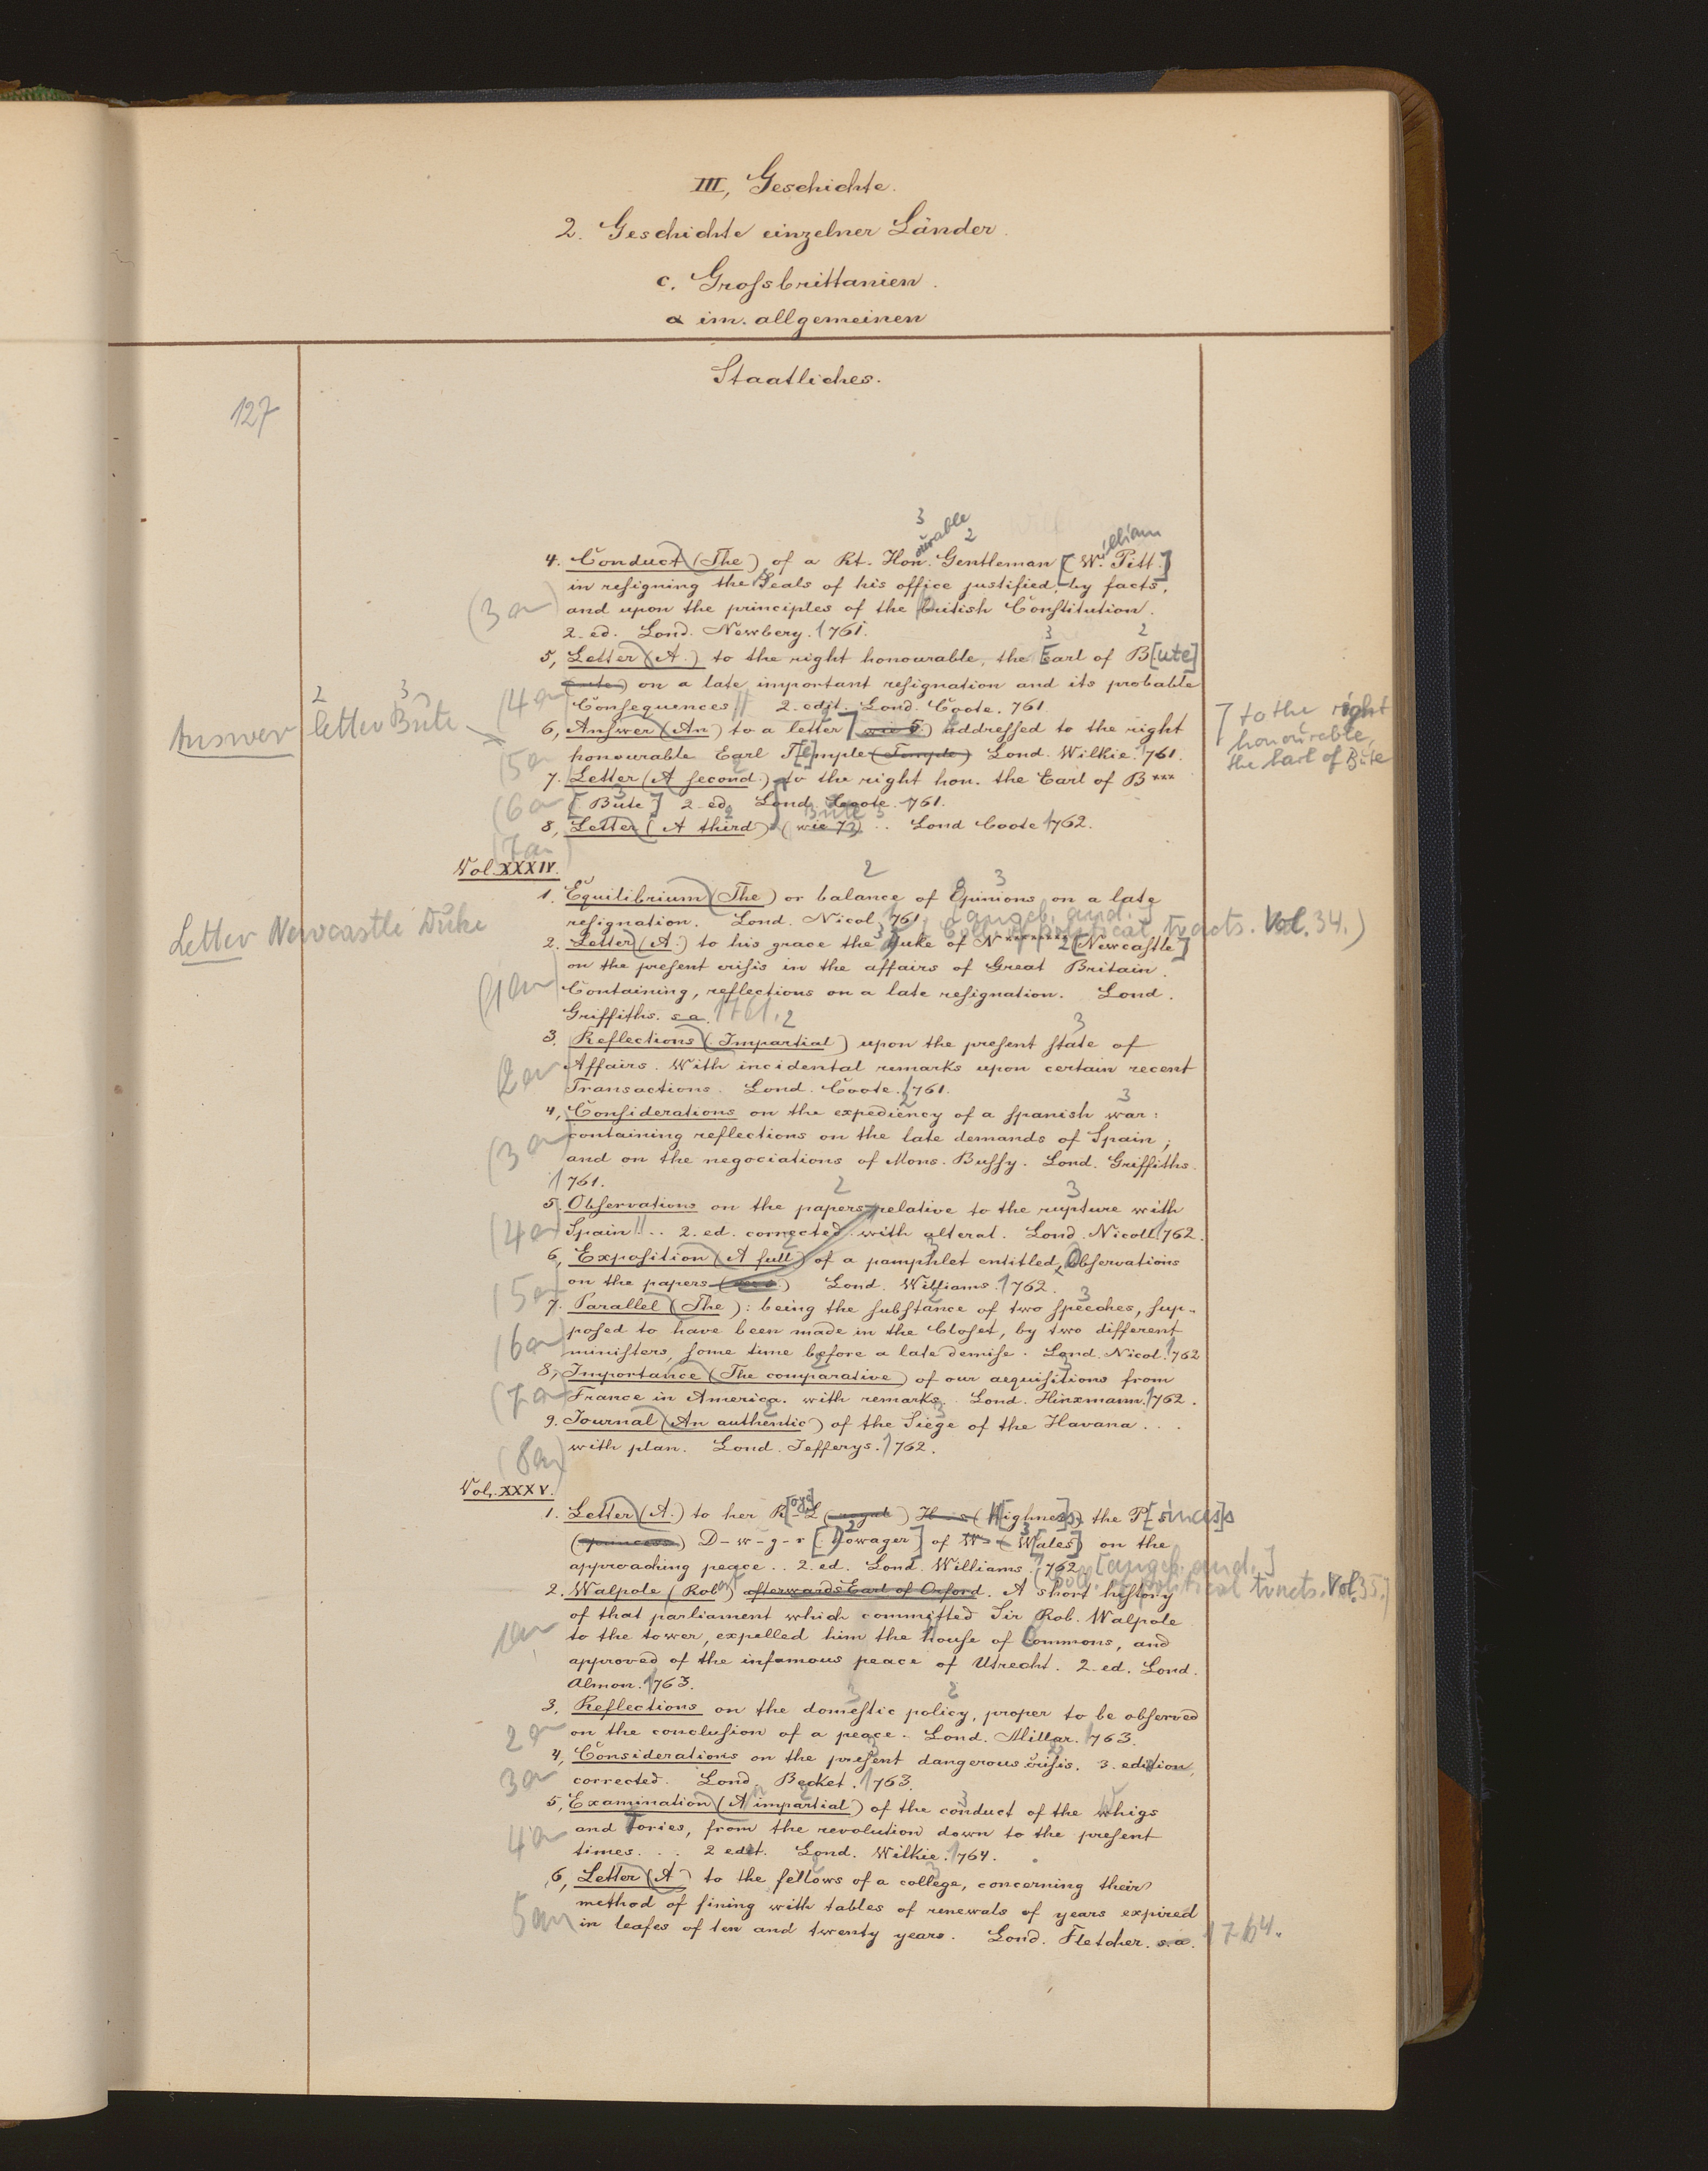 III, Geschichte.
2. Geschichte einzelner Länder.
c. Grossbrittanien.
α im. allgemeinen
Staatliches.
127
4. Conduct (The) of a Rt. Honourable Gentleman [William Pitt.]
in resigning the Seals of his office justified, by facts,
(3 an) and upon the principles of the british Constitution.
2. ed. Lond. Newbery. 1761.
5, Letter (A.) to the right honourable, the Earl of B[ute]
on a late important resignation and its probable
(4 an Consequences // 2. edit. Lond. Coote. 761.
Answer letter Bute
6, Answer (An) to a letter ] (wie 5.) addressed to the right
] to the right honourable, the Earl of Bute
(5 an honourable Earl T[e]mple (Temple) Lond. Wilkie. 1761.
7. Letter (A second.) to the right hon. the Earl of B***
(6 an [Bute] 2. ed. Lond. Coote. 761.
8, Letter (A third) (wie 7) Bute .. Lond Coote 1762.
(7 an)
Vol. XXXIV.
1. Equilibrium (The) or balance of Opinions on a late
resignation. Lond. Nicol. 1761. [angeb. and.]
Coll. of political tracts. Vol. 34.)
Letter Newcastle Duke
2. Letter (A.) to his grace the Duke of N******** [Newcastle]
on the present crisis in the affairs of Great Britain.
(1 an) Containing, reflections on a late resignation. Lond.
Griffiths. s.a. 1761.
3. Reflections (Impartial) upon the present state of
(2 an Affairs. With incidental remarks upon certain recent
Transactions. Lond. Coote. 1761.
4, Considerations on the expediency of a spanish war:
(3 an containing reflections on the late demands of Spain;
and on the negociations of Mons. Bussy. Lond. Griffiths.
1761.
5. Observations on the papers relative to the rupture with
(4 an) Spain!! .. 2. ed. corrected with alterat. Lond. Nicoll. 1762.
6, Exposition (A full) of a pamphlet entitled, Observations
(5 an on the papers Lond. Williams. 1762.
7. Parallel (The): being the substance of two speeches, sup-
(6 an) posed to have been made in the Closet, by two different
ministers, some time before a late demise. Lond. Nicol. 1762
8, Importance (The comparative) of our acquisitions from
(7 an) France in America. with remarks. Lond. Hinxmann. 1762.
9. Journal (An authentic) of the Siege of the Havana ...
(8 an) with plan. Lond. Jefferys. 1762.
Vol. XXXV.
1. Letter (A.) to her R[oya]L (royal) H-s (H[ighnes]s) the P[rinces]s
(princess) D-w-g-r [Dowager] of W-s (W[ales]) on the
approaching peace .. 2. ed. Lond. Williams. 1762 [angeb. and.]
Coll. of political tracts. Vol. 35.]
2. Walpole (Robert) afterwards Earl of Orford. A short history
of that parliament which committed Sir Rob. Walpole
1 an to the tower, expelled him the house of Commons, and
approved of the infamous peace of Utrecht. 2. ed. Lond.
Almon. 1763.
3, Reflections on the domestic policy, proper to be observed
2 an on the conclusion of a peace. Lond. Millar. 1763.
4, Considerations on the present dangerous crisis. 3. edition,
3 an corrected. Lond. Becket. 1763.
5, Examination (An impartial) of the conduct of the Whigs
4 an and Tories, from the revolution down to the present
times. .. 2 edit. Lond. Wilkie. 1764.
6, Letter (A) to the fellows of a college, concerning their
method of fining with tables of renewals of years expired
5 an in leases of ten and twenty years. Lond. Fletcher. s.a. 1764.